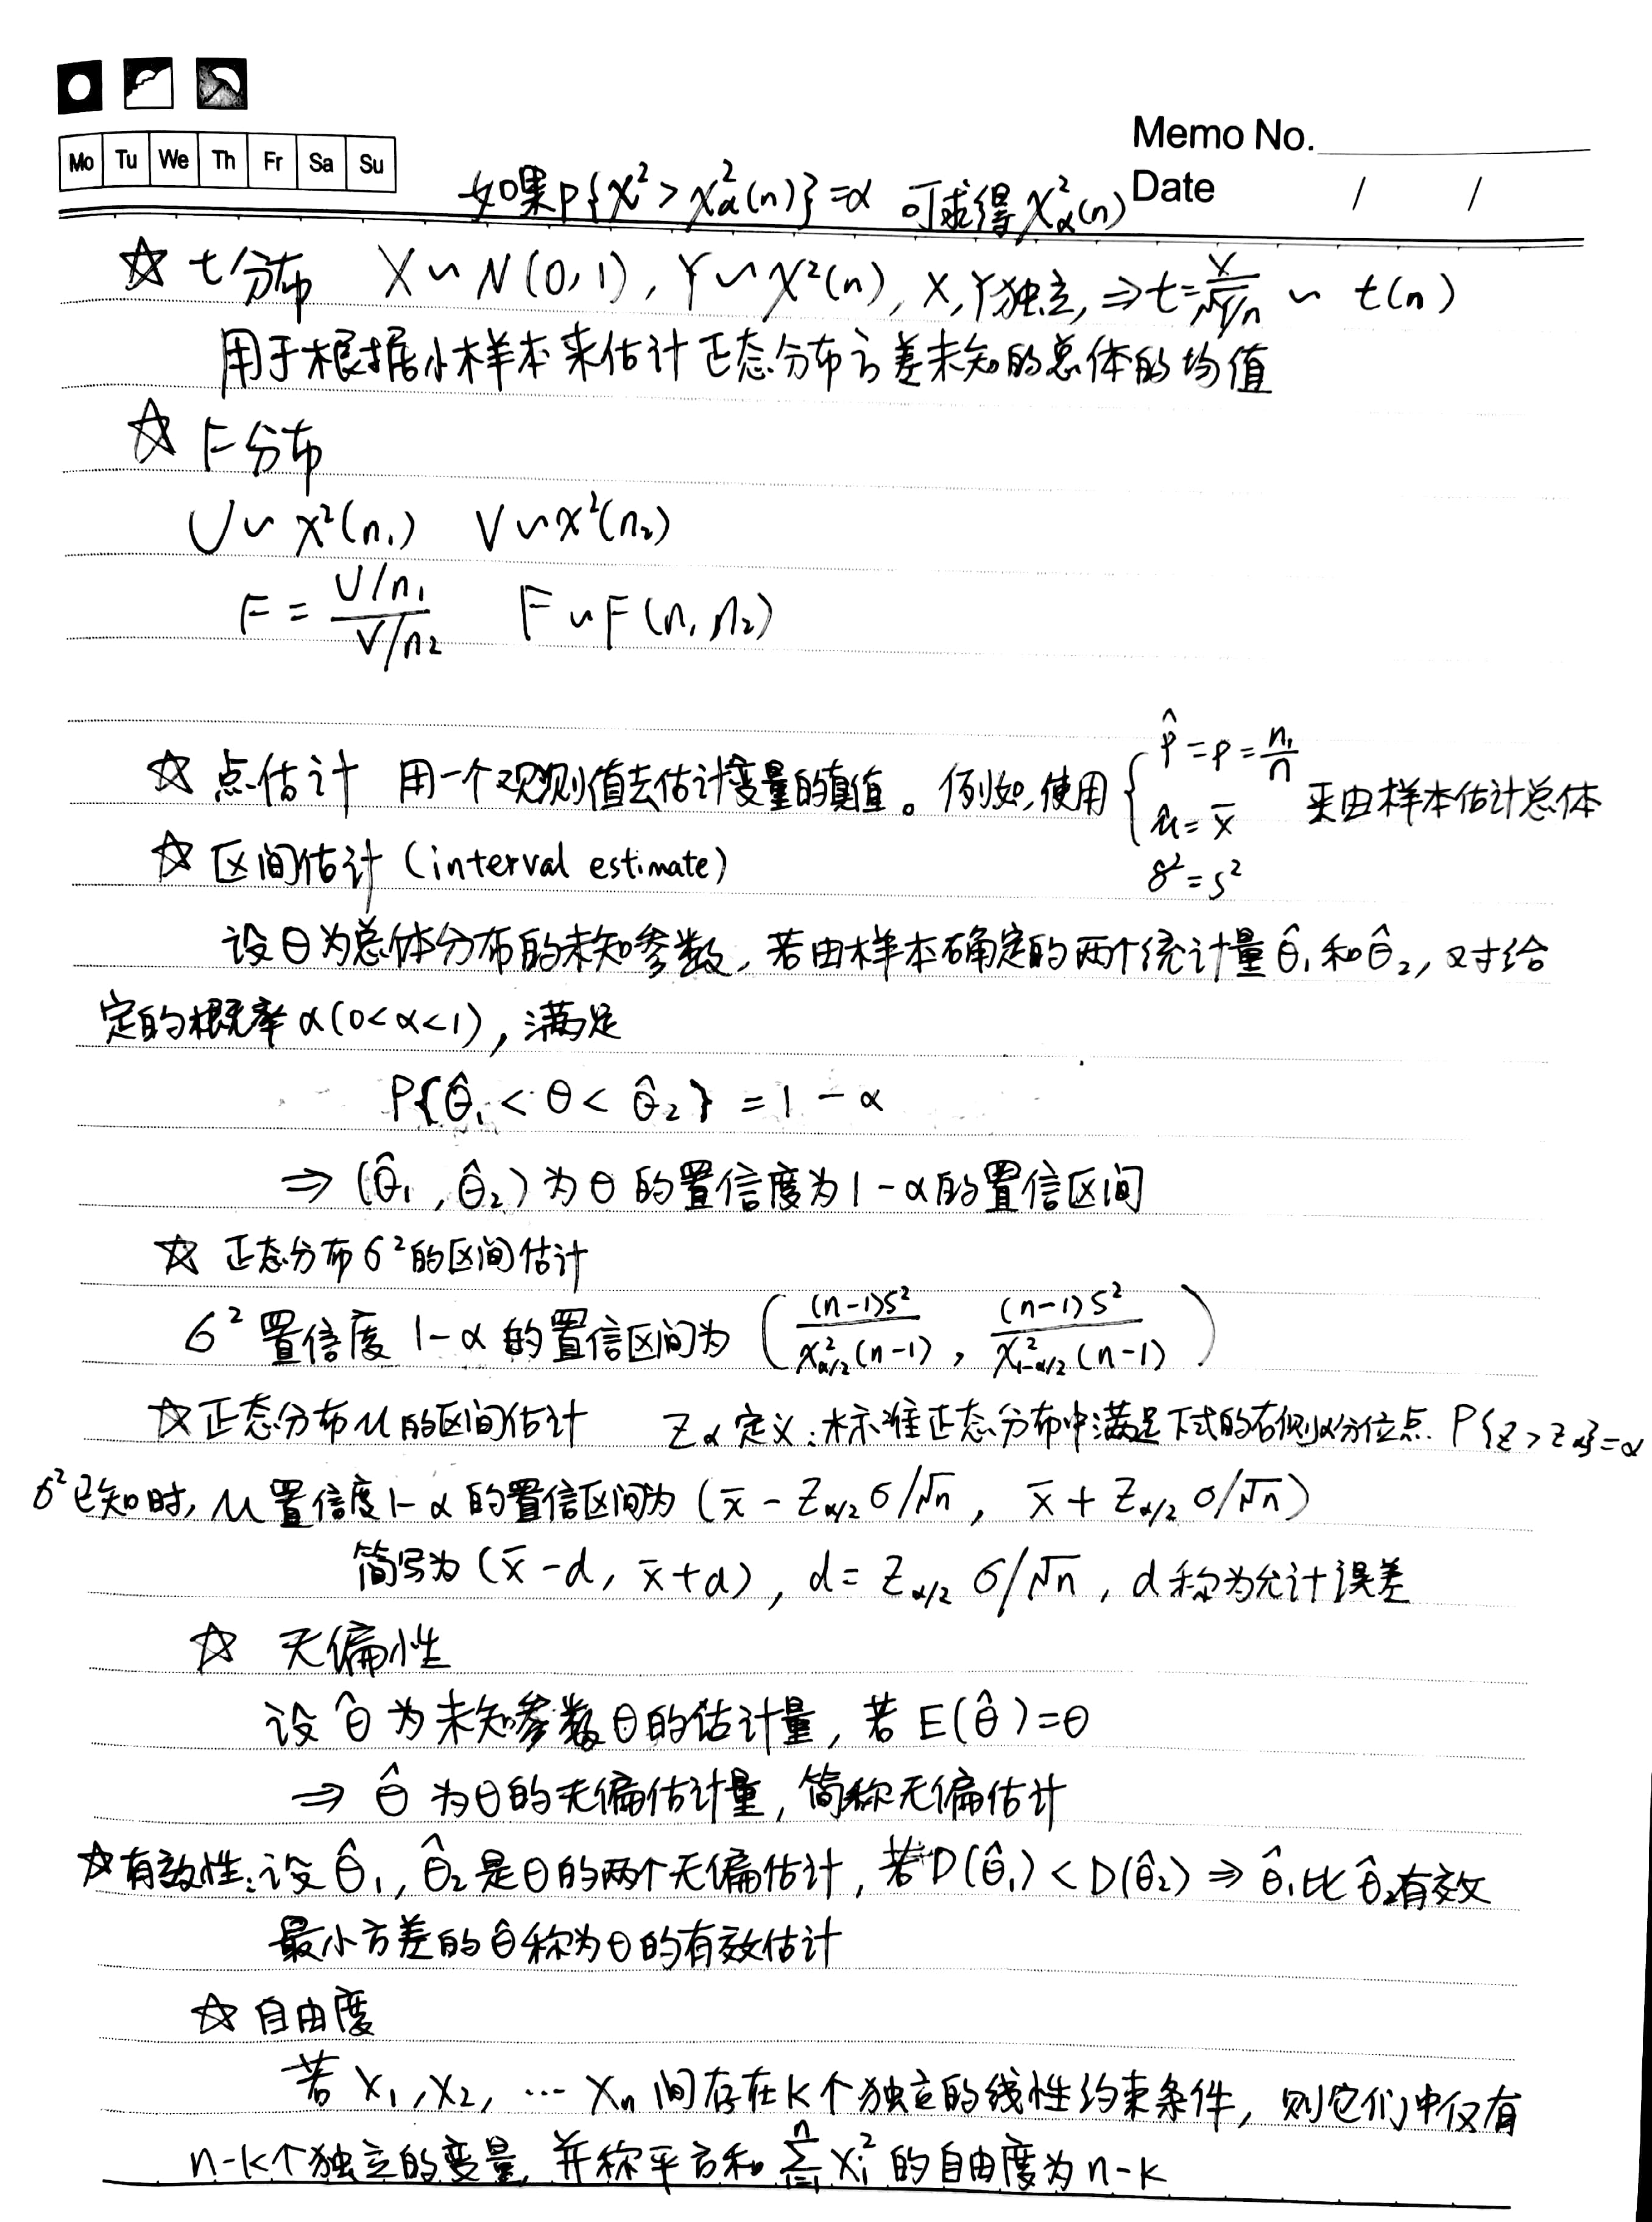 Memo No.
Mo Tu We Th Fr Sa Su
Date / /
如果P{χ²>χ²α(n)}=α 可求得χ²α(n)
☆ t分布 X~N(0,1), Y~χ²(n), X,Y独立, ⇒t=X/√(Y/n) ~ t(n)
用于根据小样本来估计正态分布方差未知的总体的均值
☆ F分布
U~χ²(n₁) V~χ²(n₂)
F = (U/n₁)/(V/n₂) F~F(n₁, n₂)
☆ 点估计 用一个观测值去估计变量的真值。例如,使用 { p̂=p=n₁/n
μ̂=x̄
σ̂²=s² 来由样本估计总体
☆ 区间估计 (interval estimate)
设θ为总体分布的未知参数, 若由样本确定的两个统计量θ̂₁和θ̂₂, 对给
定的概率α(0<α<1), 满足
P{θ̂₁<θ<θ̂₂}=1-α
⇒(θ̂₁, θ̂₂)为θ的置信度为1-α的置信区间
☆ 正态分布σ²的区间估计
σ²置信度1-α的置信区间为 ((n-1)S²/χ²α/2(n-1), (n-1)S²/χ²1-α/2(n-1))
☆正态分布μ的区间估计 Zα定义:标准正态分布中满足下式的右侧α分位点. P{z>zα}=α
σ²已知时, μ置信度1-α的置信区间为(x̄-Zα/2 σ/√n, x̄+Zα/2 σ/√n)
简写为(x̄-d, x̄+d), d=Zα/2 σ/√n, d称为允计误差
☆ 无偏性
设θ̂为未知参数θ的估计量, 若E(θ̂)=θ
⇒ θ̂为θ的无偏估计量, 简称无偏估计
☆有效性:设θ̂₁, θ̂₂是θ的两个无偏估计, 若D(θ̂₁)<D(θ̂₂)⇒θ̂₁比θ̂₂有效
最小方差的θ̂称为θ的有效估计
☆ 自由度
若X₁,X₂, ⋯ Xₙ间存在k个独立的线性约束条件, 则它们中仅有
n-k个独立的变量, 并称平方和 ∑ⁿᵢ₌₁Xᵢ² 的自由度为n-k